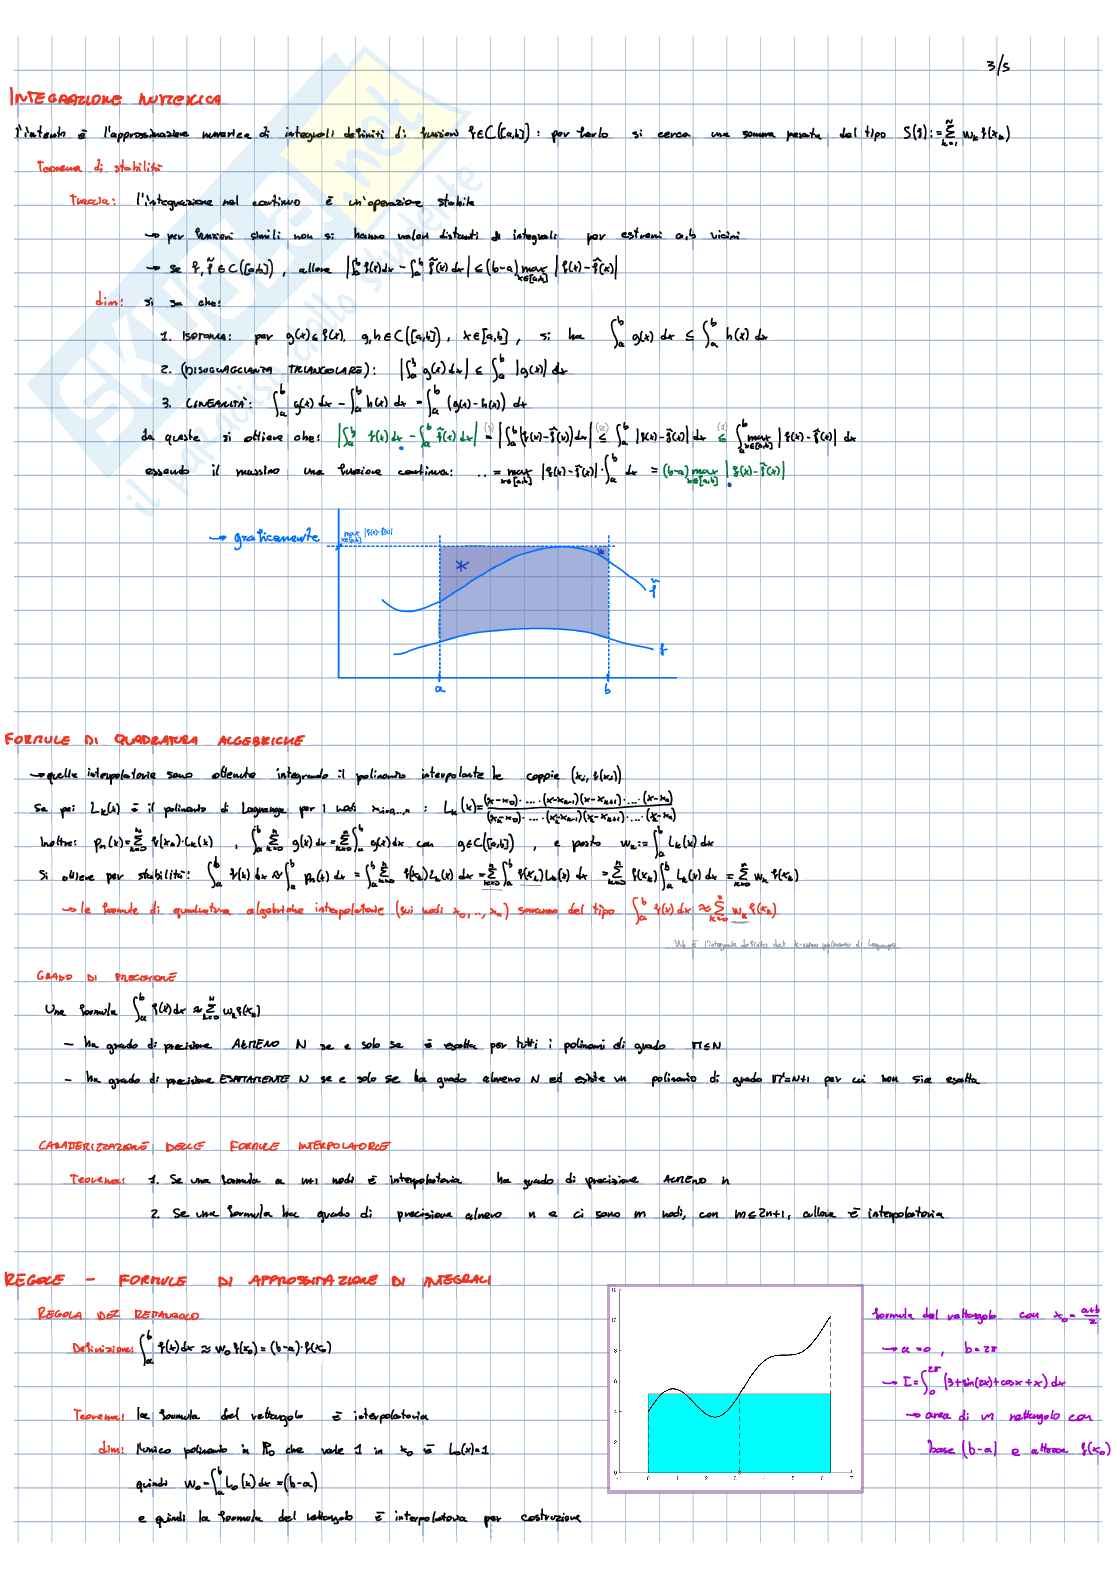 3/5
INTEGRAZIONE NUMERICA
l'intento è l'approssimazione numerica di integrali definiti di funzioni f∈C([a,b]): per farlo si cerca una somma pesata del tipo S(f):=∑_{k=1}^{N} w_k f(x_k)
Teorema di stabilità
Traccia: l'integrazione nel continuo è un'operazione stabile
→ per funzioni simili non si hanno valori distanti di integrali per estremi a,b vicini
→ se f, f̃ ∈ C([a,b]), allora |∫_a^b f(x)dx - ∫_a^b f̃(x)dx| ≤ (b-a) max_{x∈[a,b]} |f(x)-f̃(x)|
dim: si sa che:
1. ISOTONIA: per g(x)≤f(x), g,h∈C([a,b]), x∈[a,b], si ha ∫_a^b g(x) dx ≤ ∫_a^b h(x) dx
2. (DISUGUAGLIANZA TRIANGOLARE): |∫_a^b g(x) dx| ≤ ∫_a^b |g(x)| dx
3. LINEARITÀ: ∫_a^b g(x) dx - ∫_a^b h(x) dx = ∫_a^b (g(x)-h(x)) dx
da queste si ottiene che: |∫_a^b f(x) dx - ∫_a^b f̃(x) dx| =(3) |∫_a^b (f(x)-f̃(x)) dx| ≤(2) ∫_a^b |f(x)-f̃(x)| dx ≤(1) ∫_a^b max_{x∈[a,b]} |f(x)-f̃(x)| dx
essendo il massimo una funzione continua: .. = max_{x∈[a,b]} |f(x)-f̃(x)|·∫_a^b dx = (b-a) max_{x∈[a,b]} |f(x)-f̃(x)|
→ graficamente
max_{x∈[a,b]} |f(x)-f̃(x)|
*
*
f̃
f
a
b
FORMULE DI QUADRATURA ALGEBRICHE
→ quelle interpolatorie sono ottenute integrando il polinomio interpolante le coppie (x_i, f(x_i))
Se poi L_k(x) è il polinomio di Lagrange per i nodi x_{i=0,..,n}: L_k(x)=((x-x_0)·...·(x-x_{k-1})(x-x_{k+1})·...·(x-x_n))/((x_k-x_0)·...·(x_k-x_{k-1})(x_k-x_{k+1})·...·(x_k-x_n))
Inoltre: p_n(x)=∑_{k=0}^{n} f(x_k)·L_k(x), ∫_a^b ∑_{k=0}^{n} g(x) dx = ∑_{k=0}^{n} ∫_a^b g(x) dx con g∈C([a,b]), e posto w_k:=∫_a^b L_k(x) dx
Si ottiene per stabilità: ∫_a^b f(x) dx ≈ ∫_a^b p_n(x) dx = ∫_a^b ∑_{k=0}^{n} f(x_k) L_k(x) dx = ∑_{k=0}^{n} ∫_a^b f(x_k) L_k(x) dx = ∑_{k=0}^{n} f(x_k) ∫_a^b L_k(x) dx = ∑_{k=0}^{n} w_k f(x_k)
→ le formule di quadratura algebriche interpolatorie (sui nodi x_0,..,x_n) saranno del tipo ∫_a^b f(x) dx ≈ ∑_{k=0}^{n} w_k f(x_k)
w_k è l'integrale definito del k-esimo polinomio di Lagrange
GRADO DI PRECISIONE
Una formula ∫_a^b f(x) dx ≈ ∑_{k=0}^{N} w_k f(x_k)
- ha grado di precisione ALMENO N se e solo se è esatta per tutti i polinomi di grado M≤N
- ha grado di precisione ESATTAMENTE N se e solo se ha grado almeno N ed esiste un polinomio di grado M=N+1 per cui non sia esatta
CARATTERIZZAZIONE DELLE FORMULE INTERPOLATORIE
Teorema: 1. Se una formula a n+1 nodi è interpolatoria ha grado di precisione ALMENO n
2. Se una formula ha grado di precisione almeno n e ci sono m nodi, con m≤2n+1, allora è interpolatoria
REGOLE - FORMULE DI APPROSSIMAZIONE DI INTEGRALI
REGOLA DEL RETTANGOLO
Definizione: ∫_a^b f(x) dx ≈ w_0 f(x_0) = (b-a)·f(x_0)
Teorema: la formula del rettangolo è interpolatoria
dim: l'unico polinomio in P_0 che vale 1 in x_0 è L_0(x)=1
quindi w_0=∫_a^b L_0(x) dx = (b-a)
e quindi la formula del rettangolo è interpolatoria per costruzione
formula del rettangolo con x_0 = (a+b)/2
→ a=0, b=2π
→ I=∫_0^{2π} (3+sin(2x)+cosx+x) dx
→ area di un rettangolo con
base (b-a) e altezza f(x_0)
SKUOLA.net
il paradiso dello studente